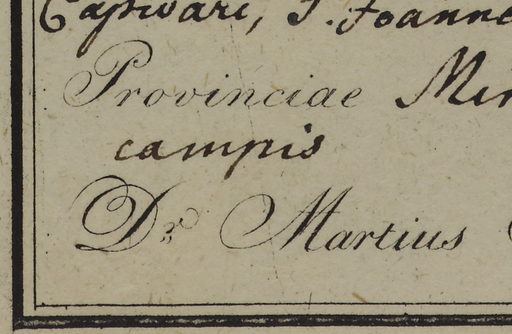 Capivari, S. Joanne
Provinciae Min
campis
Dr. Martius